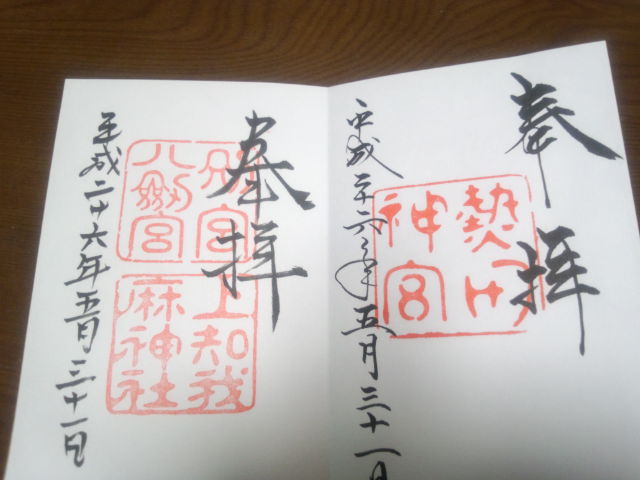 奉拝
熱田
神宮
平成二十六年五月三十一日
奉拝
別宮
八劔宮
上知我
麻神社
平成二十六年五月三十一日